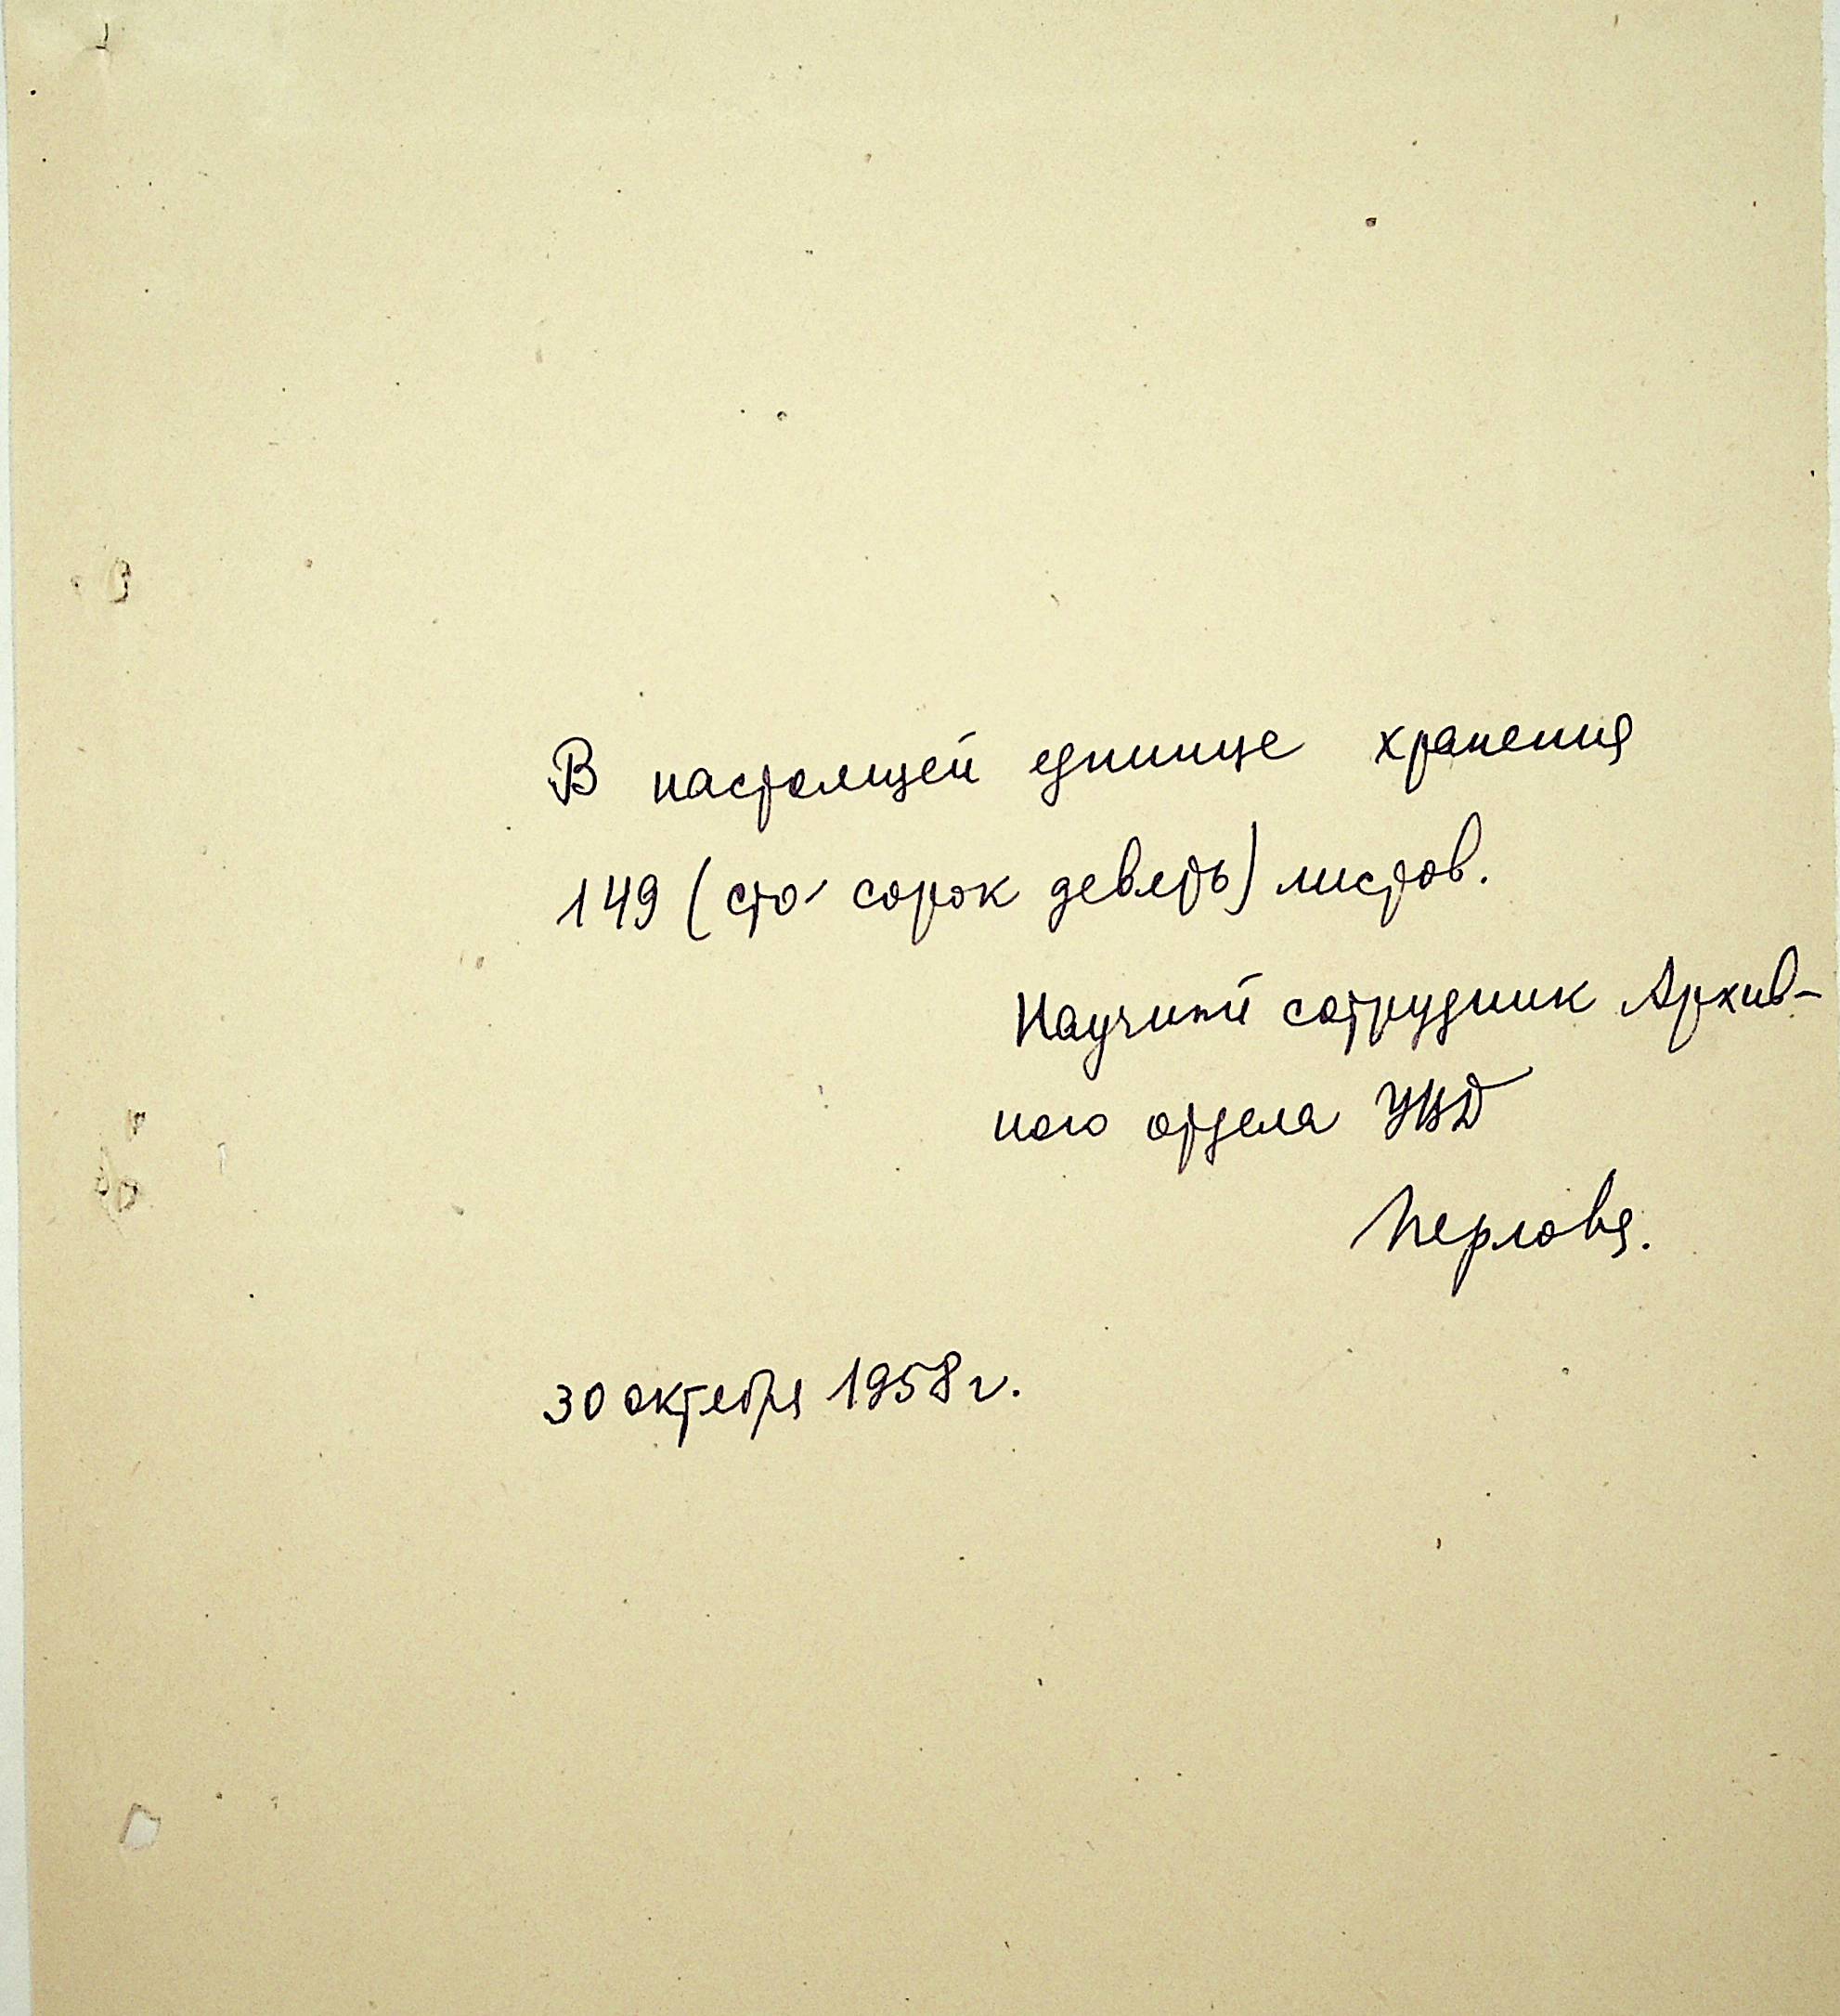 В настоящей единице хранения
149 (сто сорок девять) листов.
Научный сотрудник Архив-
ного отдела УВД
Перлова.
30 октября 1958 г.